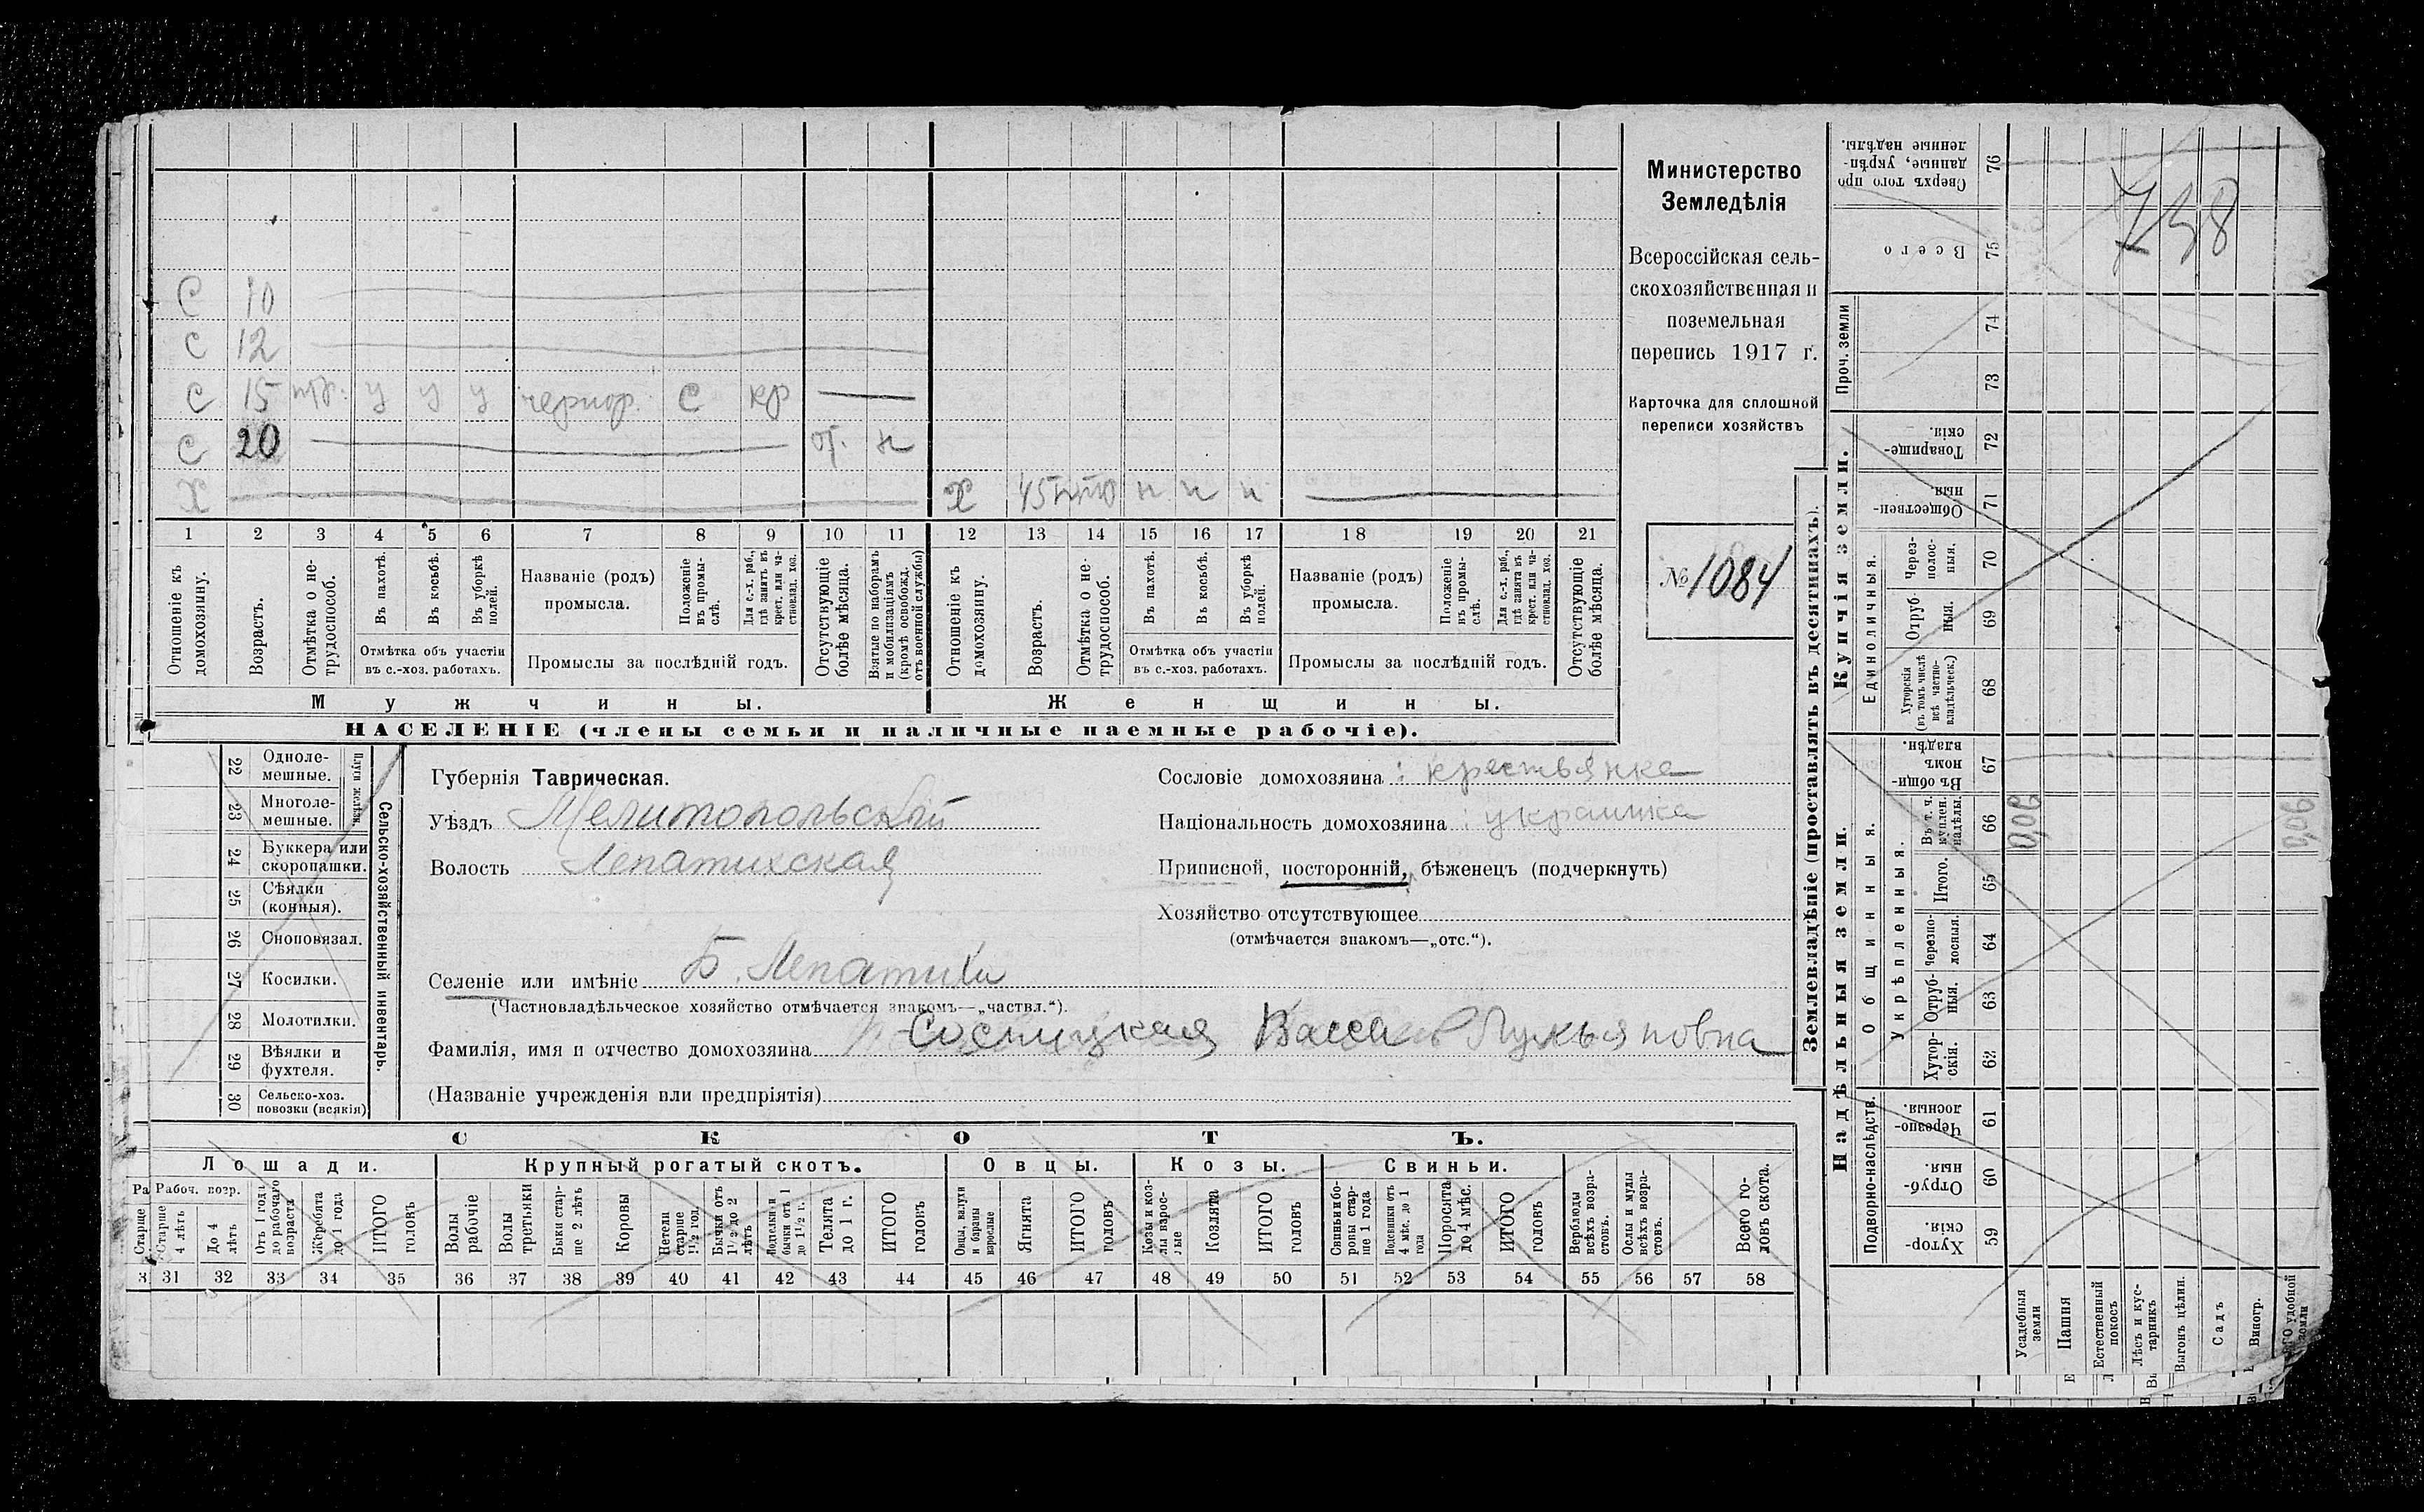 С 10
С 12
С 15 у у у чернор. С кр —
С 20 от. н
Х Х 45 н н н
1 2 3 4 5 6 7 8 9 10 11 12 13 14 15 16 17 18 19 20 21
Отношеніе къ домохозяину.
Возрастъ.
Отмѣтка о не-трудоспособ.
Въ пахотѣ.
Въ косьбѣ.
Въ уборкѣ полей.
Отмѣтка объ участіи въ с.-хоз. работахъ.
Названіе (родъ) промысла.
Положеніе въ промы-слѣ.
Для с.-х. раб., гдѣ занятъ въ крест. или ча-стновлад. хоз.
Промыслы за послѣдній годъ.
Отсутствующіе болѣе мѣсяца.
Взятые по наборамъ и мобилизаціямъ (кромѣ освобожд. отъ военной службы)
Отношеніе къ домохозяину.
Возрастъ.
Отмѣтка о не-трудоспособ.
Въ пахотѣ.
Въ косьбѣ.
Въ уборкѣ полей.
Отмѣтка объ участіи въ с.-хоз. работахъ.
Названіе (родъ) промысла.
Положеніе въ промы-слѣ.
Для с.-х. раб., гдѣ занята въ крест. или ча-стновлад. хоз.
Промыслы за послѣдній годъ.
Отсутствующіе болѣе мѣсяца.
Мужчины. Женщины.
НАСЕЛЕНІЕ (члены семьи и наличные наемные рабочіе).
Министерство
Земледѣлія
Всероссійская сель-
скохозяйственная и
поземельная
перепись 1917 г.
Карточка для сплошной
переписи хозяйствъ
№ 1084
22 Одноле-мешные.
23 Многоле-мешные.
Плуги желѣзн.
24 Буккера или скоропашки.
25 Сѣялки (конныя).
26 Сноповязал.
27 Косилки.
28 Молотилки.
29 Вѣялки и фухтеля.
30 Сельско-хоз. повозки (всякія)
Сельско-хозяйственный инвентарь.
Губернія Таврическая.
Уѣздъ Мелитопольскій
Волость Лепатихская
Селеніе или имѣніе Б. Лепатиха
(Частновладѣльческое хозяйство отмѣчается знакомъ—„частвл.“).
Фамилія, имя и отчество домохозяина Сосницкая Васса Лукьяновна
(Названіе учрежденія или предпріятія)
Сословіе домохозяина: крестьянка
Національность домохозяина: украинка
Приписной, посторонній, бѣженецъ (подчеркнуть)
Хозяйство отсутствующее
(отмѣчается знакомъ—„отс.“).
СКОТЪ.
Лошади. Крупный рогатый скотъ. Овцы. Козы. Свиньи.
Ра Рабоч. возр.
Старше
Старше 4 лѣтъ
До 4 лѣтъ
Отъ 1 года до рабочаго возраста
Жеребята до 1 года
ИТОГО головъ
Волы рабочіе
Волы третьяки
Быки стар-ше 2 лѣтъ
Коровы
Нетели старше 1½ год.
Бычки отъ 1½ до 2 лѣтъ
Подтелки и бычки отъ 1 до 1½ г.
Телята до 1 г.
ИТОГО головъ
Овцы, валухи и бараны взрослые
Ягнята
ИТОГО головъ
Козы и коз-лы взрос-лые
Козлята
ИТОГО головъ
Свиньи и бо-ровы стар-ше 1 года
Подсвинки отъ 4 мѣс. до 1 года
Поросята до 4 мѣс.
ИТОГО головъ
Верблюды всѣхъ возра-стовъ.
Ослы и мулы всѣхъ возра-стовъ.
Всего го-ловъ скота.
3 31 32 33 34 35 36 37 38 39 40 41 42 43 44 45 46 47 48 49 50 51 52 53 54 55 56 57 58
Землевладѣніе (проставлять въ десятинахъ).
Купчія земли.
Надѣльныя земли.
Проч. земли
76 Сверхъ того про данные, укрѣп-ленные надѣлы.
75 Всего
74
73
72 Товарище-скія.
71 Обществен-ныя.
Единоличныя.
70 Через-полос-ныя.
69 Отруб-ныя.
68 Хуторскія (въ томъ числѣ всѣ частно-владѣльческ.)
Общинныя.
67 Въ общин-номъ владѣн.
Укрѣпленныя.
66 Въ т. ч. куплен. надѣлы.
65 Итого.
64 Черезпо-лосныя.
63 Отруб-ныя.
62 Хутор-скія.
Подворно-наслѣдств.
61 Черезпо-лосныя.
60 Отруб-ныя.
59 Хутор-скія.
Усадебныя земли
Пашня
Естественный покосъ
Лѣсъ и кус-тарникъ
Выгонъ цѣлин.
Садъ
Виногр.
удобной земли
758